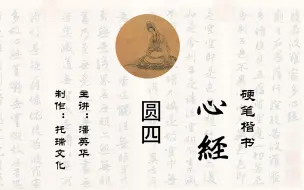 硬笔楷书
心經
圆四
主讲：潘英华
制作：托瑞文化